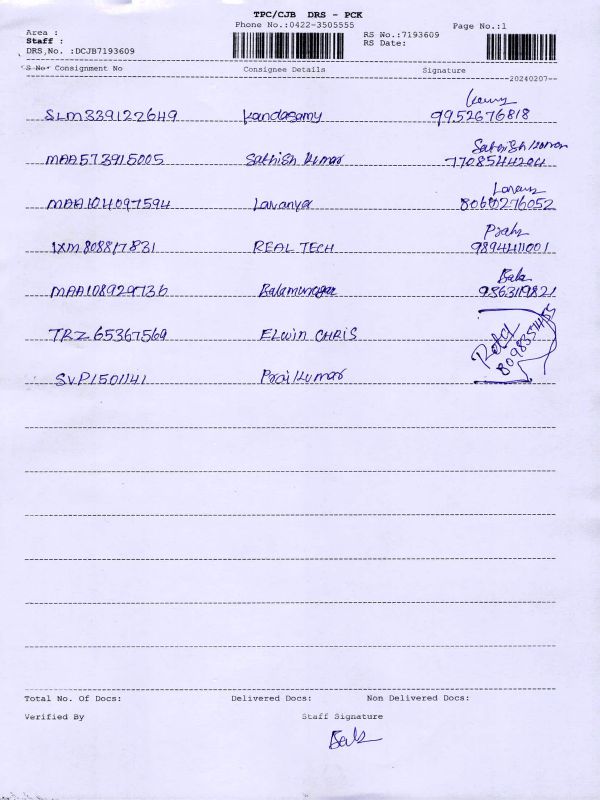 TPC/CJB DRS - PCK
Phone No.:0422-3505555
Page No.:1
Area :
Staff :
DRS,No. :DCJB7193609
RS No.:7193609
RS Date:
S No Consignment No Consignee Details Signature
20240207
SLM339122649 Kandasamy 9952676818
MAA573915005 Sathish Kumar Sathish Kumar 7708544204
MAA104097594 Lavanya 8060276052
IXM808817831 REAL TECH 9894411001
MAA108929736 Balamurugan Bala 986319821
TRZ65367569 ELWIN CHRIS
SVP1501141
Total No. Of Docs: Delivered Docs: Non Delivered Docs:
Verified By Staff Signature
Bala